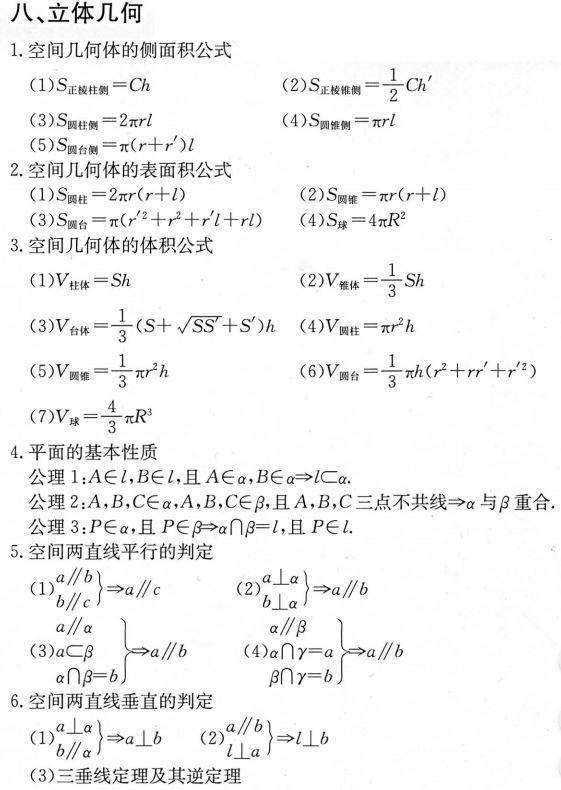 八、立体几何
1.空间几何体的侧面积公式
(1)S正棱柱侧=Ch (2)S正棱锥侧=1/2Ch′
(3)S圆柱侧=2πrl (4)S圆锥侧=πrl
(5)S圆台侧=π(r+r′)l
2.空间几何体的表面积公式
(1)S圆柱=2πr(r+l) (2)S圆锥=πr(r+l)
(3)S圆台=π(r′²+r²+r′l+rl) (4)S球=4πR²
3.空间几何体的体积公式
(1)V柱体=Sh (2)V锥体=1/3Sh
(3)V台体=1/3(S+√SS′+S′)h (4)V圆柱=πr²h
(5)V圆锥=1/3πr²h (6)V圆台=1/3πh(r²+rr′+r′²)
(7)V球=4/3πR³
4.平面的基本性质
公理1:A∈l,B∈l,且A∈α,B∈α⇒l⊂α.
公理2:A,B,C∈α,A,B,C∈β,且A,B,C三点不共线⇒α与β重合.
公理3:P∈α,且P∈β⇒α∩β=l,且P∈l.
5.空间两直线平行的判定
(1)a∥b b∥c}⇒a∥c (2)a⊥α b⊥α}⇒a∥b
(3)a∥α a⊂β α∩β=b}⇒a∥b (4)α∥β α∩γ=a β∩γ=b}⇒a∥b
6.空间两直线垂直的判定
(1)a⊥α b∥α}⇒a⊥b (2)a∥b l⊥a}⇒l⊥b
(3)三垂线定理及其逆定理